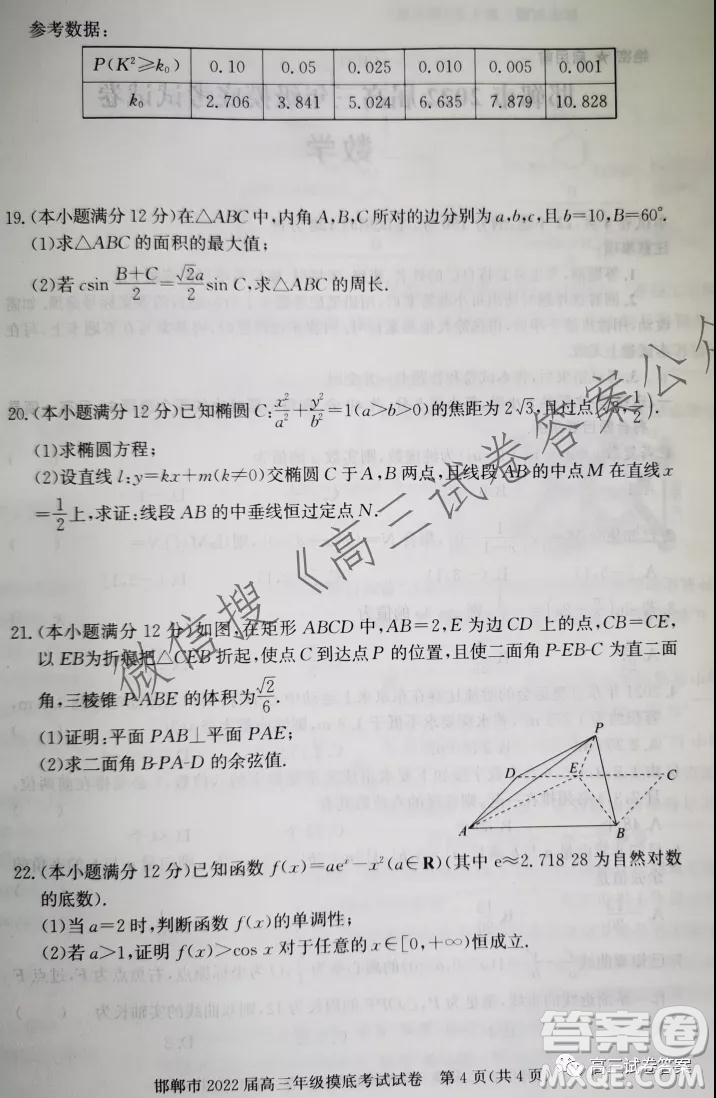 参考数据:
P(K²≥k₀) 0.10 0.05 0.025 0.010 0.005 0.001
k₀ 2.706 3.841 5.024 6.635 7.879 10.828
19.(本小题满分12分)在△ABC中,内角A,B,C所对的边分别为a,b,c,且b=10,B=60°.
(1)求△ABC的面积的最大值;
(2)若csin (B+C)/2=(√2a)/2 sin C,求△ABC的周长.
20.(本小题满分12分)已知椭圆C:x²/a²+y²/b²=1(a>b>0)的焦距为2√3,且过点( ,1/2).
(1)求椭圆方程;
(2)设直线l:y=kx+m(k≠0)交椭圆C于A,B两点,且线段AB的中点M在直线x
=1/2上,求证:线段AB的中垂线恒过定点N.
21.(本小题满分12分)如图,在矩形ABCD中,AB=2,E为边CD上的点,CB=CE,
以EB为折痕把△CEB折起,使点C到达点P的位置,且使二面角P-EB-C为直二面
角,三棱锥P-ABE的体积为√2/6.
(1)证明:平面PAB⊥平面PAE;
(2)求二面角B-PA-D的余弦值.
P
D E C
A B
22.(本小题满分12分)已知函数f(x)=aeˣ-x²(a∈R)(其中e≈2.718 28为自然对数
的底数).
(1)当a=2时,判断函数f(x)的单调性;
(2)若a>1,证明f(x)>cos x对于任意的x∈[0,+∞)恒成立.
邯郸市2022届高三年级摸底考试试卷 第4页(共4页
微信搜《高三试卷答案公众
答案圈
高三试卷答案
MXQE.COM